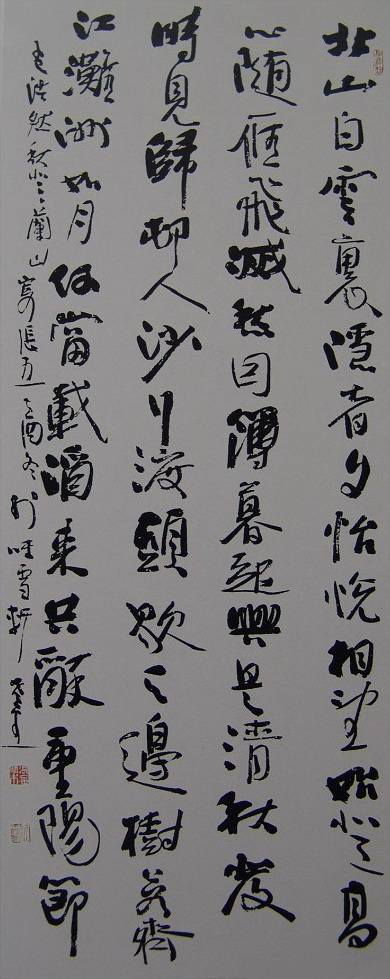 北山白雲裏隱者自怡悅相望始登高
心隨雁飛滅愁因薄暮起興是清秋發
時見歸邨人沙行渡頭歇天邊樹若薺
江灘洲如月何當載酒來共醉重陽節
孟浩然秋登蘭山寄張五乙酉冬於吟雪軒